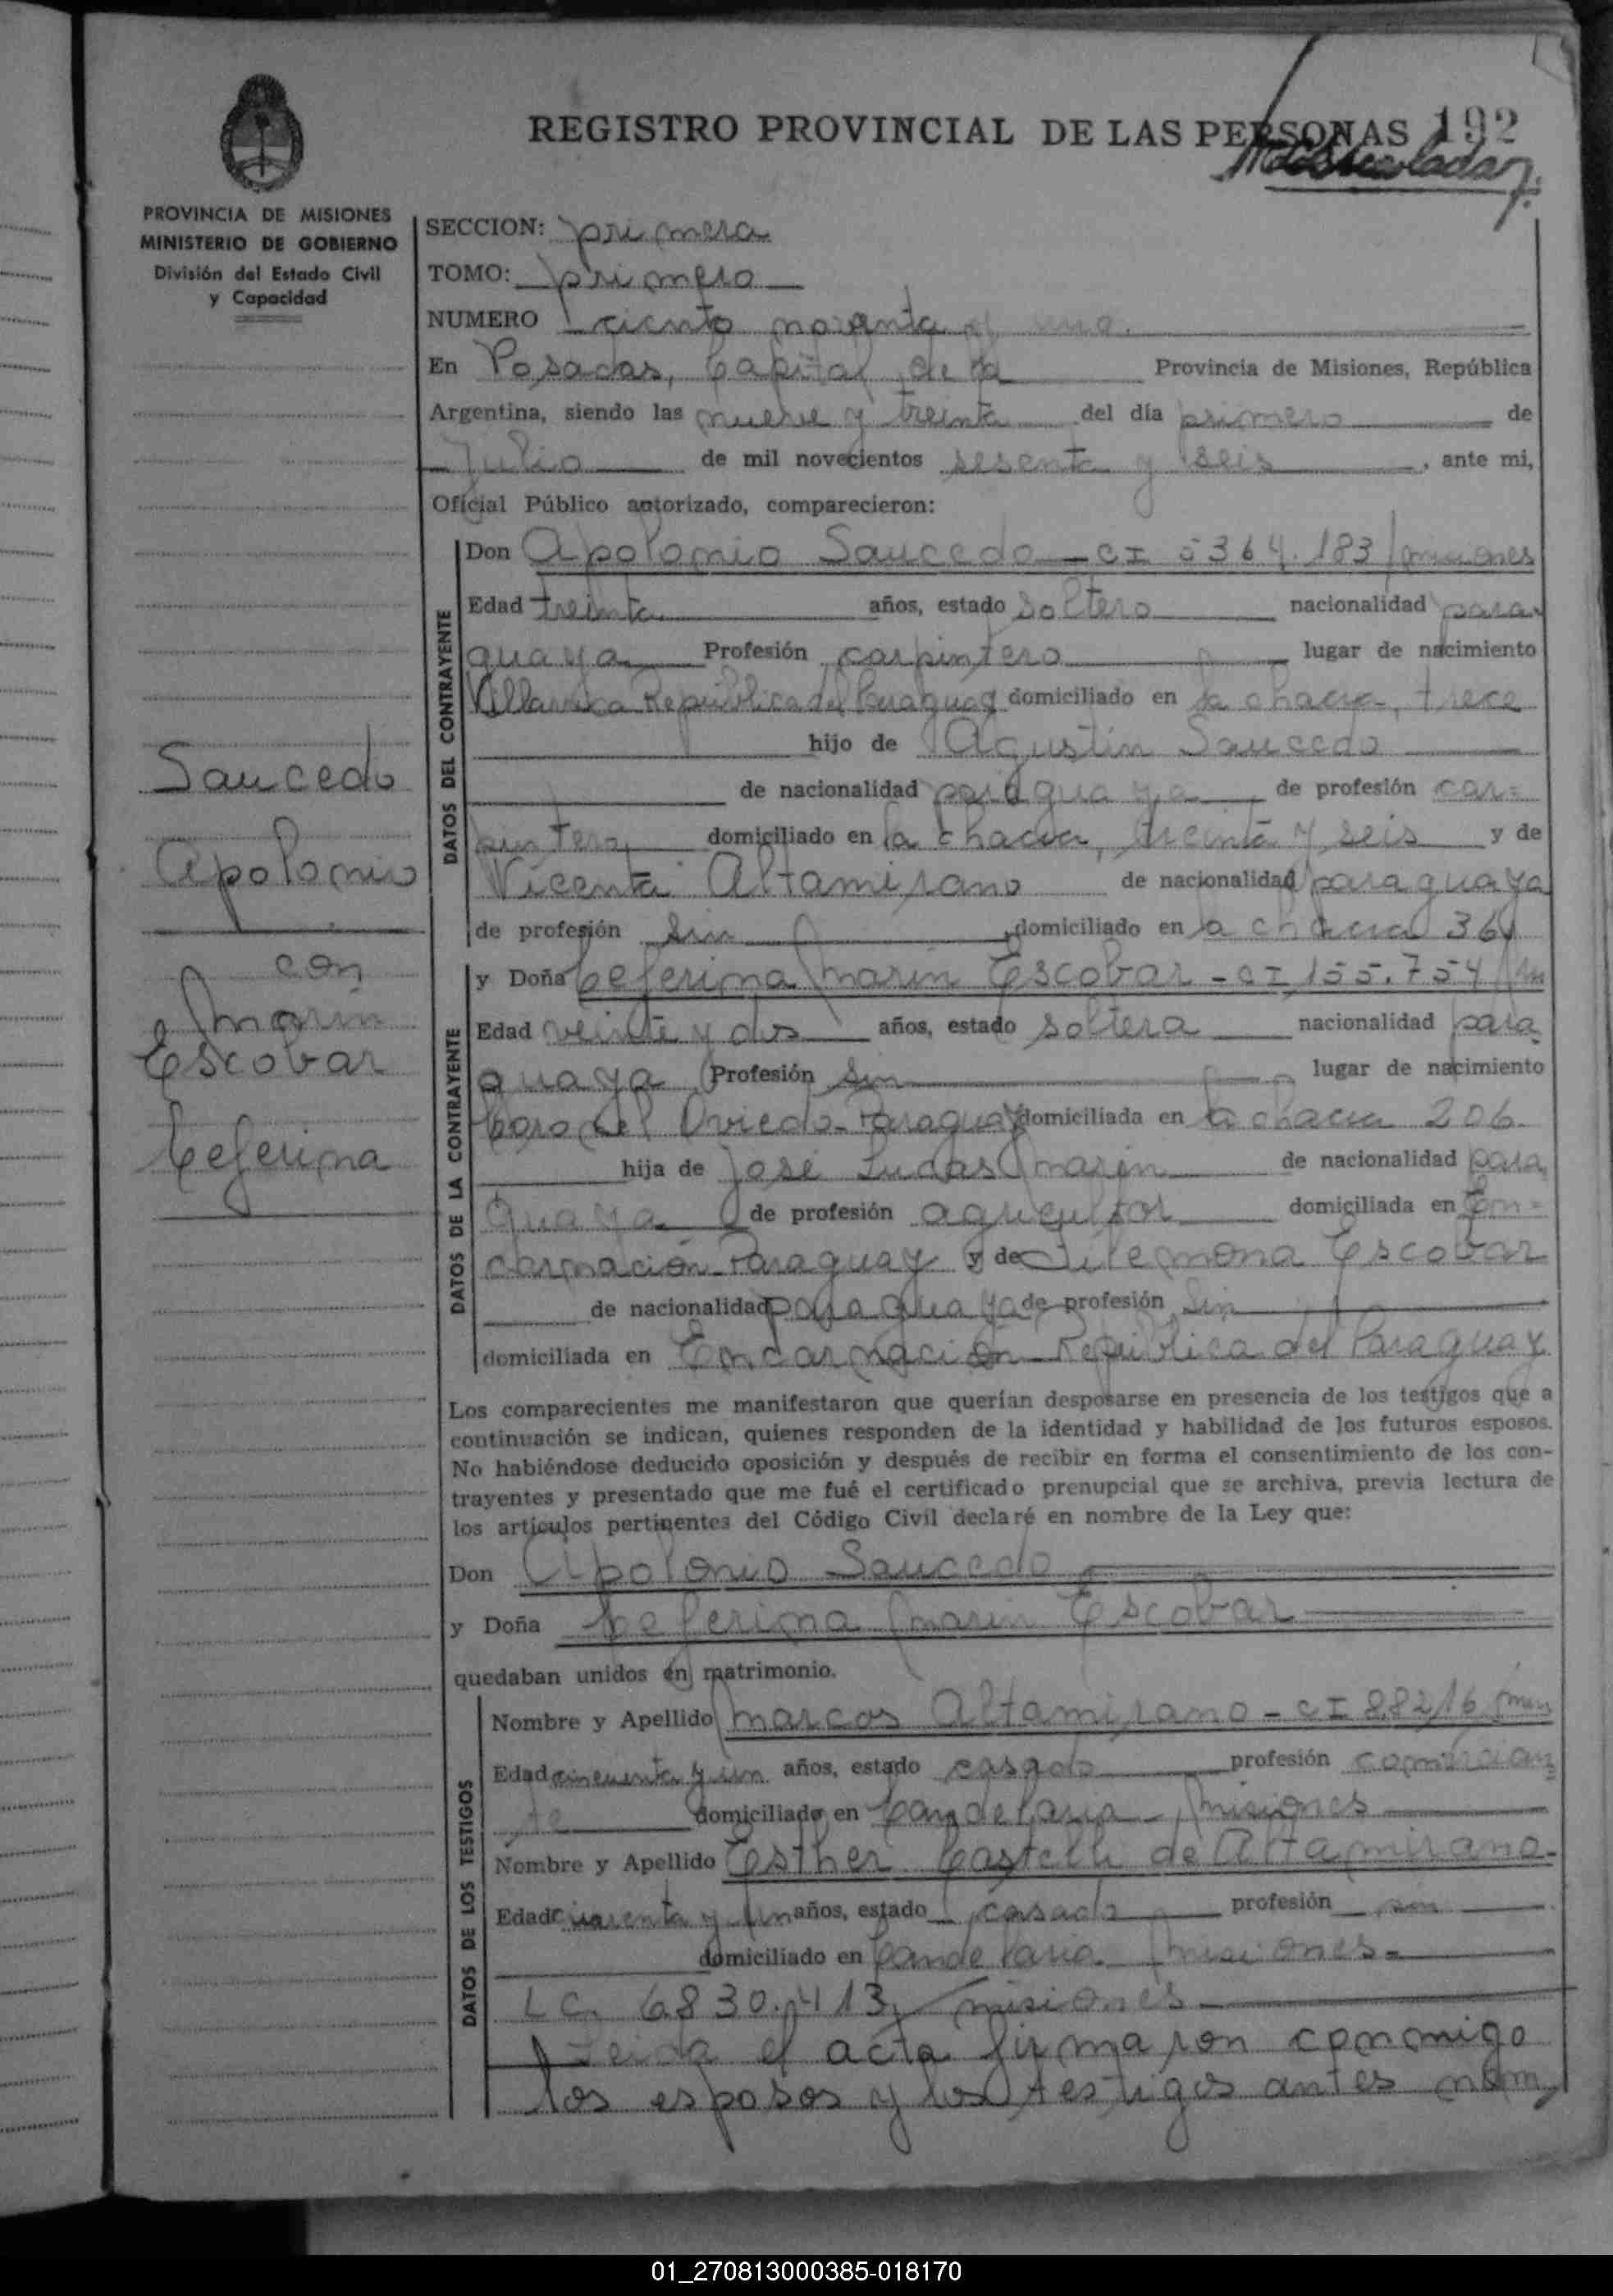 REGISTRO PROVINCIAL DE LAS PERSONAS 192
PROVINCIA DE MISIONES
MINISTERIO DE GOBIERNO
División del Estado Civil
y Capacidad
SECCION: primera
TOMO: primero
NUMERO ciento noventa y uno.
En Posadas, Capital de la Provincia de Misiones, República
Argentina, siendo las nueve y treinta del día primero de
Julio de mil novecientos sesenta y seis, ante mi,
Oficial Público autorizado, comparecieron:
DATOS DEL CONTRAYENTE
Don Apolonio Saucedo - CI 364.183/misiones
Edad treinta años, estado soltero nacionalidad para
guaya Profesión carpintero lugar de nacimiento
Villarrica República del Paraguay domiciliado en la chacra, trece
hijo de Agustin Saucedo
de nacionalidad paraguaya de profesión car=
pintero, domiciliado en la chacra, treinta y seis y de
Vicenta Altamirano de nacionalidad paraguaya
de profesión sin domiciliado en la chacra 36
Saucedo
Apolonio
con
Marin
Escobar
Ceferina
DATOS DE LA CONTRAYENTE
y Doña Ceferina Marin Escobar - CI 155.754
Edad veinte y dos años, estado soltera nacionalidad para
guaya Profesión sin lugar de nacimiento
Coronel Oviedo-Paraguay domiciliada en la chacra 206.
hija de José Lucas Marin de nacionalidad para
guaya de profesión agricultor domiciliada en En=
carnación-Paraguay y de Filemona Escobar
de nacionalidad paraguaya de profesión sin
domiciliada en Encarnación República del Paraguay
Los comparecientes me manifestaron que querían desposarse en presencia de los testigos que a
continuación se indican, quienes responden de la identidad y habilidad de los futuros esposos.
No habiéndose deducido oposición y después de recibir en forma el consentimiento de los con-
trayentes y presentado que me fué el certificado prenupcial que se archiva, previa lectura de
los artículos pertinentes del Código Civil declaré en nombre de la Ley que:
Don Apolonio Saucedo
y Doña Ceferina Marin Escobar
quedaban unidos en matrimonio.
DATOS DE LOS TESTIGOS
Nombre y Apellido Marcos Altamirano - CI 88216
Edad cincuenta y un años, estado casado profesión comercian
te domiciliado en Candelaria - Misiones
Nombre y Apellido Esther Castelli de Altamirano
Edad cuarenta y un años, estado casada profesión sin
domiciliado en Candelaria Misiones-
LC. 6830.413, misiones
Leida el acta firmaron conmigo
los esposos y los testigos antes nom
01_270813000385-018170